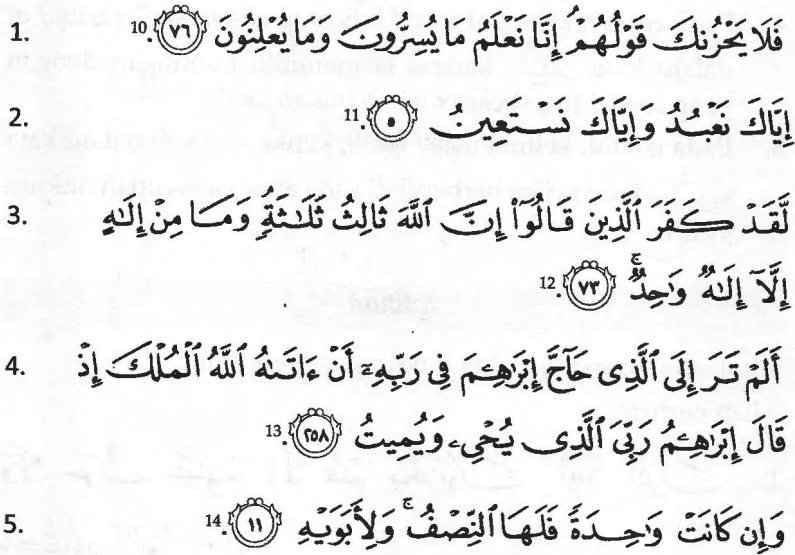 1. فَلَا يَحْزُنكَ قَوْلُهُمْ ۘ إِنَّا نَعْلَمُ مَا يُسِرُّونَ وَمَا يُعْلِنُونَ ﴿٧٦﴾ 10.
2. إِيَّاكَ نَعْبُدُ وَإِيَّاكَ نَسْتَعِينُ ﴿٥﴾ 11
3. لَّقَدْ كَفَرَ ٱلَّذِينَ قَالُوٓا۟ إِنَّ ٱللَّهَ ثَالِثُ ثَلَـٰثَةٍ وَمَا مِنْ إِلَـٰهٍ
إِلَّآ إِلَـٰهٌ وَٰحِدٌ ۚ ﴿٧٣﴾ 12.
4. أَلَمْ تَرَ إِلَى ٱلَّذِى حَآجَّ إِبْرَٰهِـۧمَ فِى رَبِّهِۦٓ أَنْ ءَاتَىٰهُ ٱللَّهُ ٱلْمُلْكَ إِذْ
قَالَ إِبْرَٰهِـۧمُ رَبِّىَ ٱلَّذِى يُحْىِۦ وَيُمِيتُ ﴿٢٥٨﴾ 13.
5. وَإِن كَانَتْ وَٰحِدَةً فَلَهَا ٱلنِّصْفُ ۚ وَلِأَبَوَيْهِ ﴿١١﴾ 14.